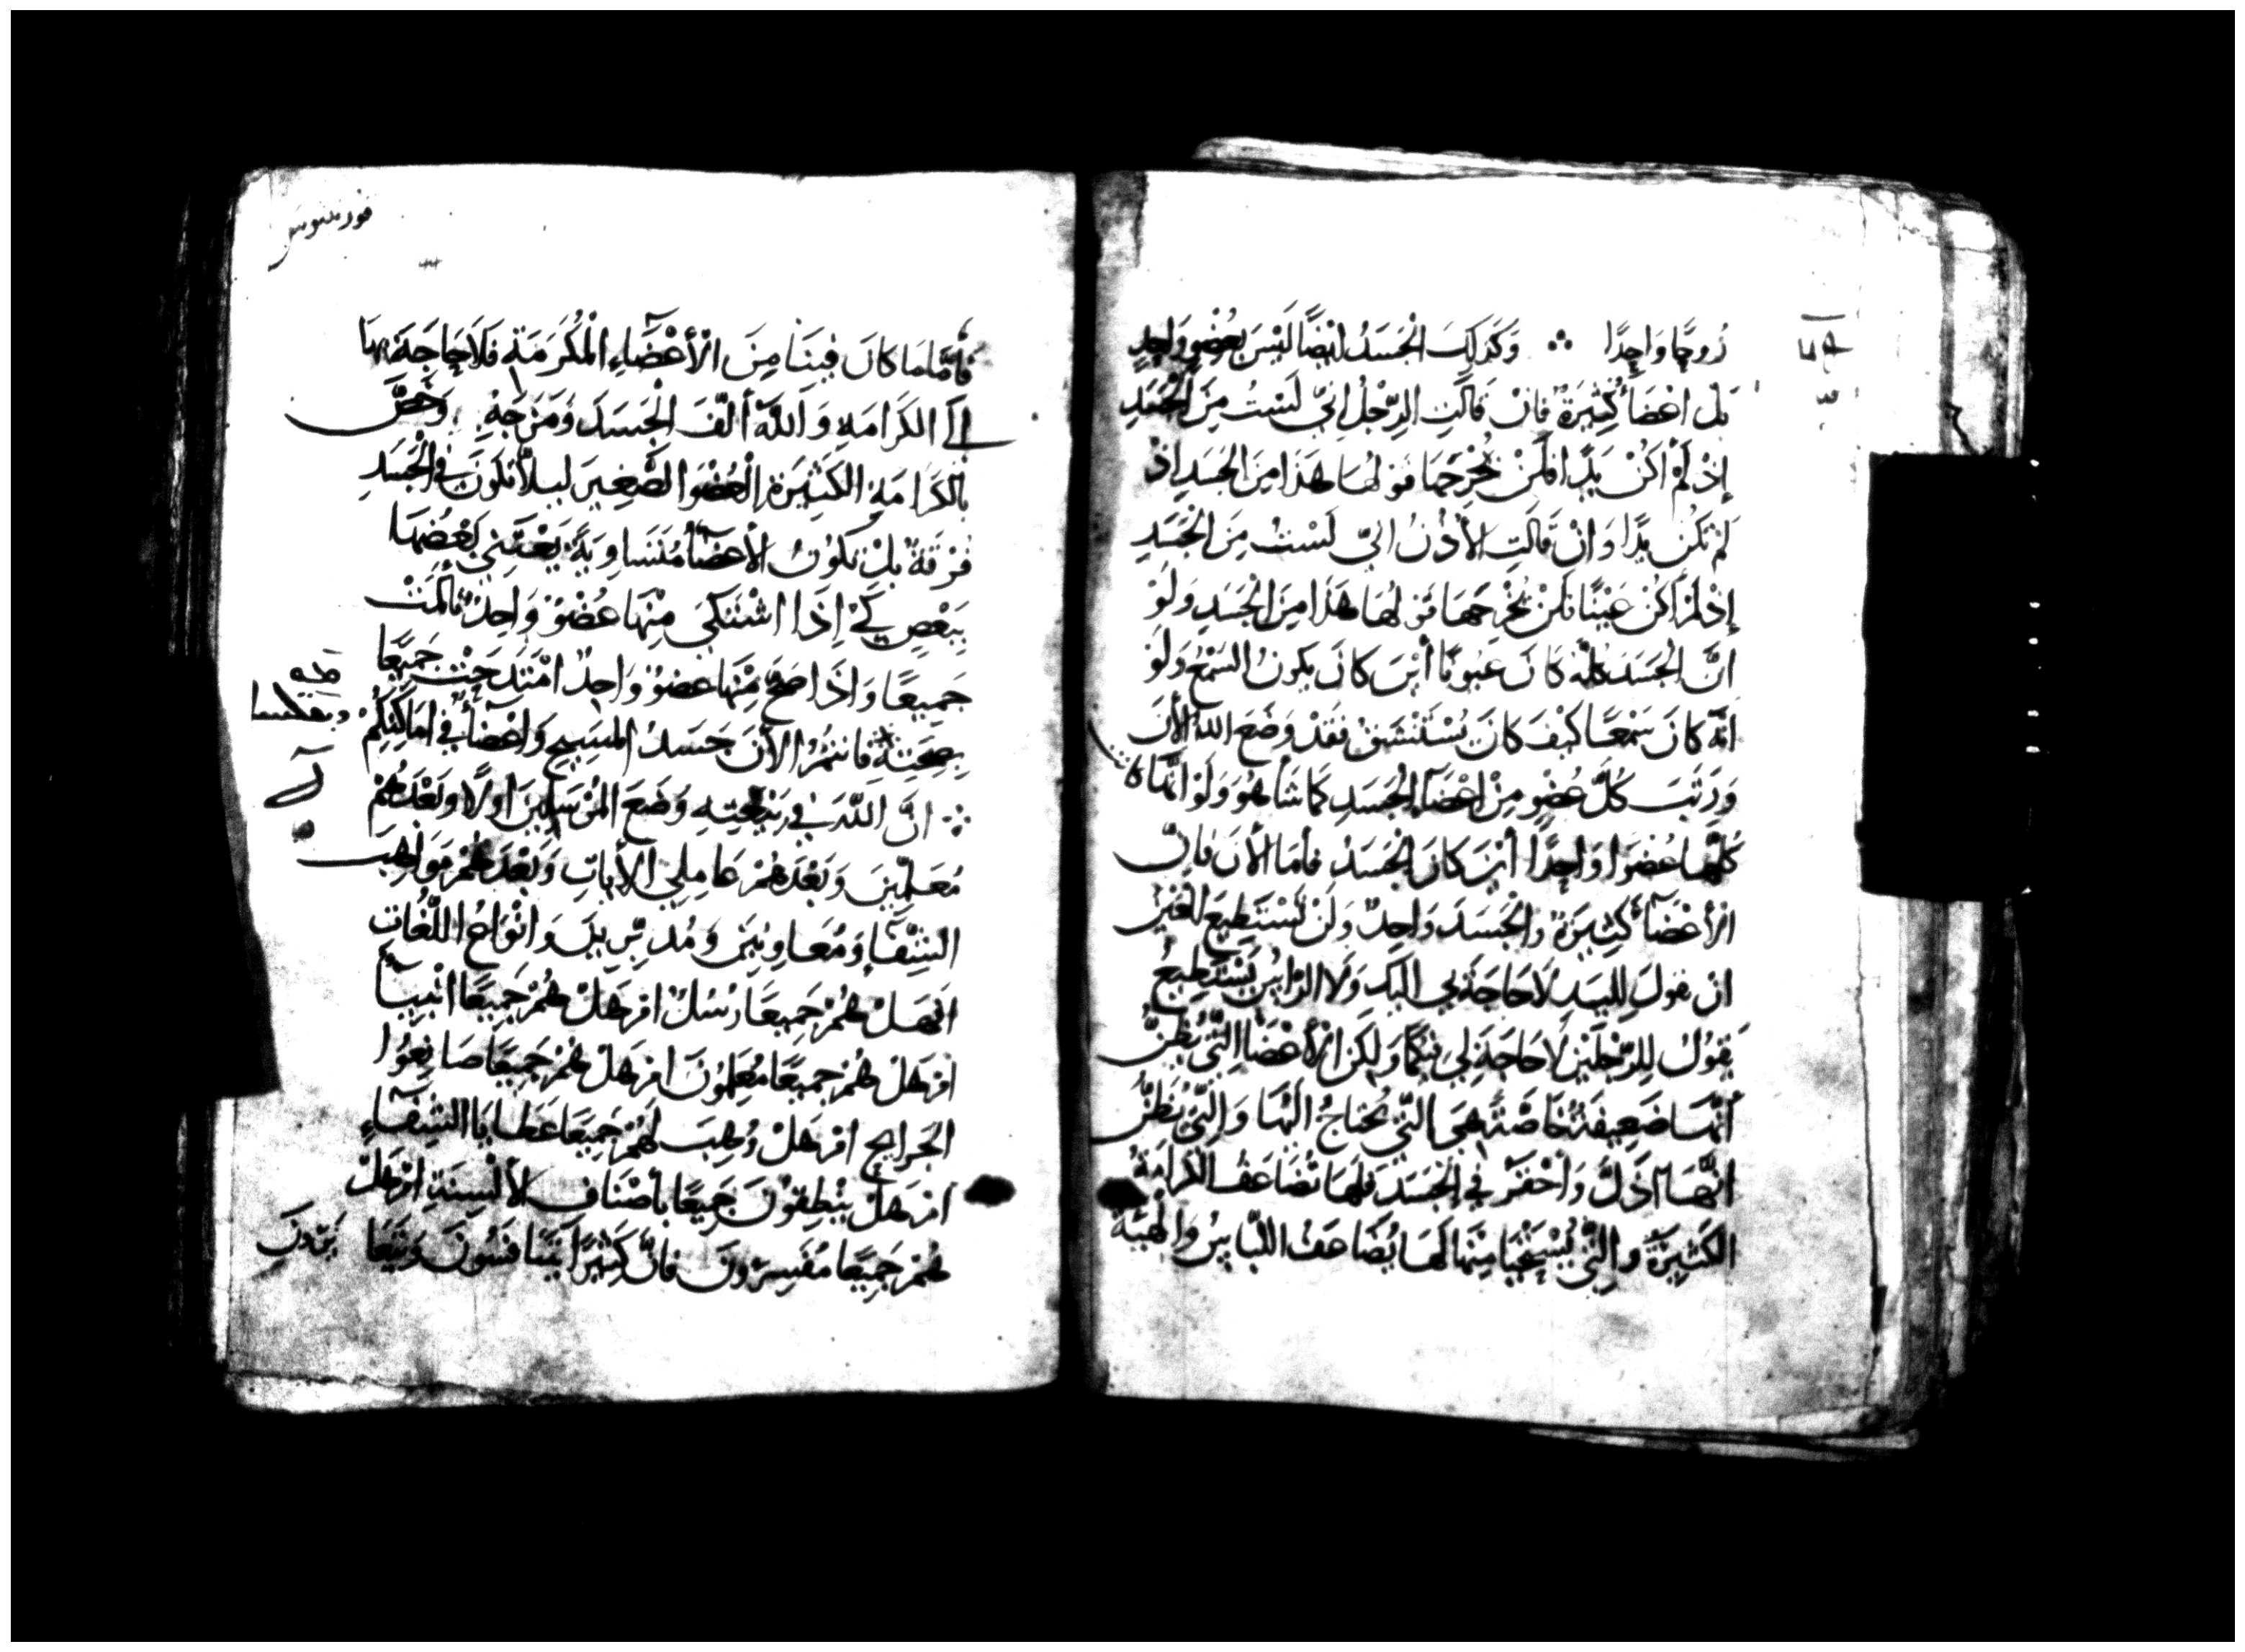 رُوحًا وَاحِدًا ܀ وَكَذَلِكَ الْجَسَدُ ايْضًا لَيْسَ بِعُضْوٍ وَاحِدٍ
بَل اعْضَاءٌ كَثِيرَةٌ فَانْ قَالَتِ الرِّجْلُ انِّي لَسْتُ مِنَ الْجَسَدِ
إِذْ لَمْ اكُنْ يَدًا فَلَنْ يُخْرِجَهَا قَوْلُهَا هَذَا مِنَ الْجَسَدِ اذْ
لَمْ تَكُنْ يَدًا وَانْ قَالَتِ الأُذُنُ انِّي لَسْتُ مِنَ الْجَسَدِ
إِذْ لَمْ اكُنْ عَيْنًا فَلَنْ يُخْرِجَهَا قَوْلُهَا هَذَا مِنَ الْجَسَدِ وَلَوْ
انَّ الْجَسَدَ كُلَّهُ كَانَ عُيُونًا أَيْنَ كَانَ يَكُونُ السَّمْعُ وَلَوْ
انَّهُ كَانَ سَمْعًا كَيْفَ كَانَ يُسْتَنْشَقُ فَقَدْ وَضَعَ اللَّهُ الأَنَ
وَرَتَّبَ كُلَّ عُضْوٍ مِنْ اعْضَاءِ الْجَسَدِ كَمَا شَأَ هُوَ وَلَوْ انَّهَا كَانَ
كُلَّهَا عُضْوًا وَاحِدًا أَيْنَ كَانَ الْجَسَدُ فَأَمَا الأَنَ فَإِنَّ
الأَعْضَآءَ كَثِيرَةٌ وَالْجَسَدَ وَاحِدٌ وَلَنْ تَسْتَطِيعَ الْعَيْنُ
انْ تَقُولَ لِلْيَدِ لَا حَاجَةَ بِي الَيْكِ وَلَا الرَّاسُ يَسْتَطِيعُ
يَقُولُ لِلرِّجْلَيْنِ لَا حَاجَةَ لِي بِكُمَا وَلَكِنَّ الأَعْضَا الَّتِي يُظَنُّ
أَنَّهَا ضَعِيفَةٌ خَاصَّةً هِيَ الَّتِي يُحْتَاجُ الَيْهَا وَالَّتِي يُظَنُّ
انَّهَا اذَلُّ وَأَحْقَرُ فِي الْجَسَدِ فَلَهَا تُضَاعَفُ الْكَرَامَةُ
الْكَثِيرَةُ وَالَّتِي يُسْتَحْيَا مِنْهَا لَهَا يُضَاعَفُ اللِّبَاسُ وَالْهَيْبَةُ
فَأَمَّا مَا كَانَ فِينَا مِنَ الأَعْضَآءِ الْمُكَرَمَةِ فَلَا حَاجَةَ بِهَا
إِلَى الْكَرَامَةِ وَاللَّهُ أَلَّفَ الْجَسَدَ وَمَزَجَهِ وَخَصَّ
بِالْكَرَامَةِ الْكَثِيرَةِ الْعُضْوَ الصَّغِيرَ لِيَلاَّ تَكُونَ فِي الْجَسَدِ
فُرْقَةٌ بَلْ تَكُونُ الأَعْضَآءُ مُتَسَاوِيَةً يَعْتَنِي بَعْضُهَا
بِبَعْضٍ كَيْ إِذَا اشْتَكَى مِنْهَا عُضْوٌ وَاحِدٌ تَأَلَمَتْ
جَمِيعًا وَاذَا صَحَّ مِنْهَا عُضْوٌ وَاحِدٌ امْتَدَحَتْ جَمِيعًا
بِصِحَتِهِ فَانْتُمُ الأَنَ جَسَدُ الْمَسِيحِ وَاعْضَاءٌ فِي امَاكِنِكُمْ
܀ انَّ اللَّهَ فِي بَيْعَتِهِ وَضَعَ الْمُرْسَلِينَ اوَلًا وَبَعْدَهُمْ
مُعَلِّمِينَ وَبَعْدَهُمْ عَامِلِي الأَيَاتِ وَبَعْدَهُمْ مَوَاهِبَ
الشِّفَآءِ وَمُعَاوِنِينَ وَمُدَبِّرِينَ وَانْوَاعُ اللُّغَاتِ
افَهَلْ هُمْ جَمِيعًا رُسُلٌ امْ هَلْ هُمْ جَمِيعًا انْبِيَآءُ
امْ هَلْ هُمْ جَمِيعًا مُعَلِمُونَ امْ هَلْ هُمْ جَمِيعًا صَانِعُوا
الْجَرَايِحِ امْ هَلْ وُهِبَ لَهُمْ جَمِيعًا عَطَايَا الشِّفَآءِ
امْ هَلْ يَنْطِقُونَ جَمِيعًا بِأَصْنَافِ الأَلْسِنَةِ امْ هَلْ
هُمْ جَمِيعًا مُفَسِرُونَ فَانَّ كَثِيرًا